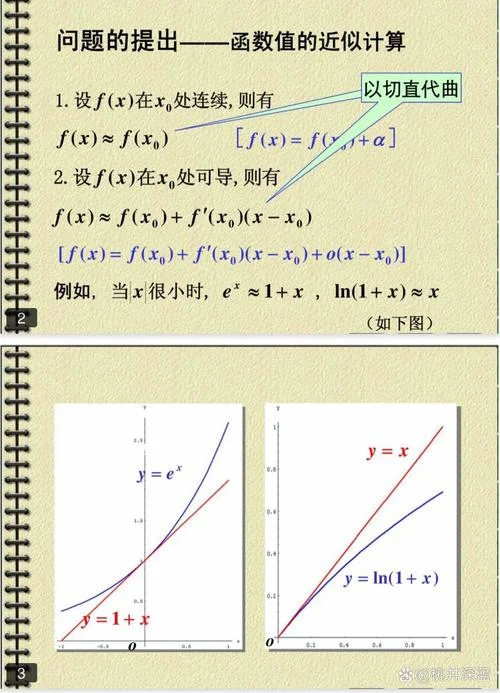 问题的提出——函数值的近似计算
以切直代曲
1.设f(x)在x₀处连续,则有
f(x)≈f(x₀) [f(x)=f(x₀)+α]
2.设f(x)在x₀处可导,则有
f(x)≈f(x₀)+f′(x₀)(x−x₀)
[f(x)=f(x₀)+f′(x₀)(x−x₀)+o(x−x₀)]
例如,当|x|很小时,eˣ≈1+x,ln(1+x)≈x
(如下图)
2
Y
2.5
y=eˣ
1.5
1
0.5
y=1+x
-1 -0.5 0.5 1 x
o
Y
1
y=x
0.8
0.6
0.4
y=ln(1+x)
0.2
o 0.2 0.4 0.6 0.8 1 x
3
@桃井深喜